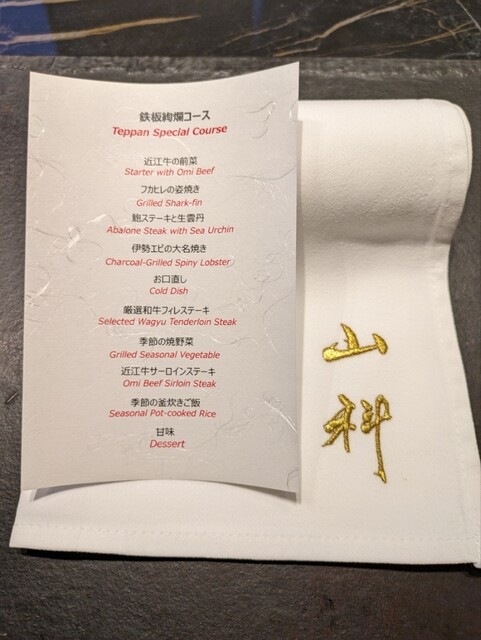 鉄板絢爛コース
Teppan Special Course
近江牛の前菜
Starter with Omi Beef
フカヒレの姿焼き
Grilled Shark-fin
鮑ステーキと生雲丹
Abalone Steak with Sea Urchin
伊勢エビの大名焼き
Charcoal-Grilled Spiny Lobster
お口直し
Cold Dish
厳選和牛フィレステーキ
Selected Wagyu Tenderloin Steak
季節の焼野菜
Grilled Seasonal Vegetable
近江牛サーロインステーキ
Omi Beef Sirloin Steak
季節の釜炊きご飯
Seasonal Pot-cooked Rice
甘味
Dessert
山
科